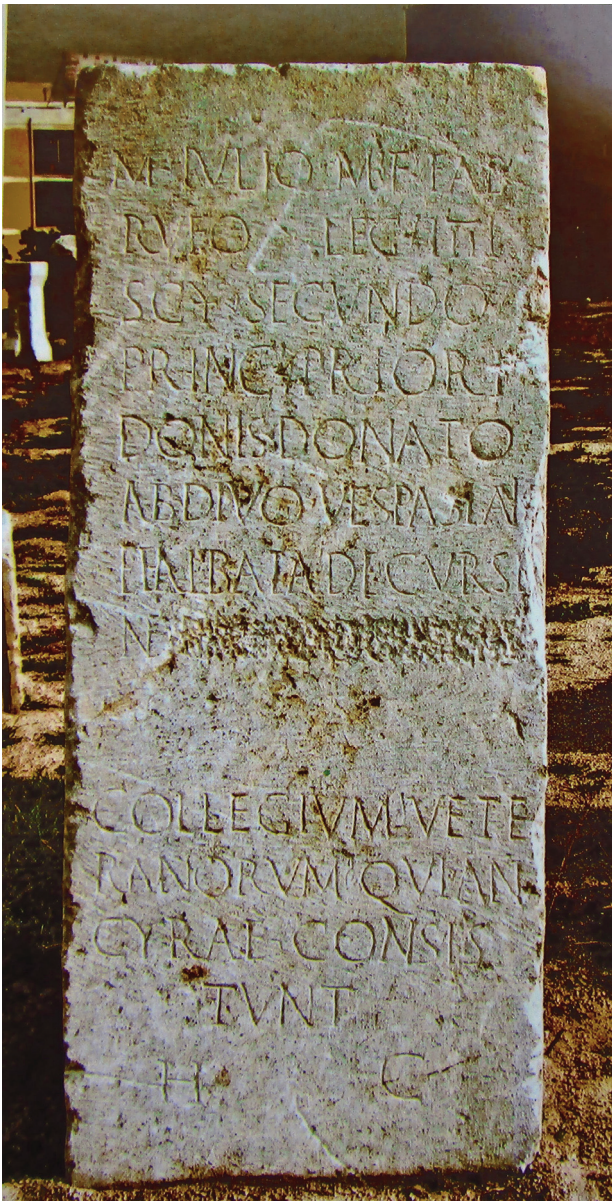 M·IVLIO·M·F·FAB
RVFO LEG·IIII
SCY·SECVNDO
PRINC·PRIORI
DONIS·DONATO
AB·DIVO·VESPASIA
ET·AB
N
COLLEGIVM·VETE
RANORVM·QVI·AN
CYRAE·CONSIS
TVNT
H C